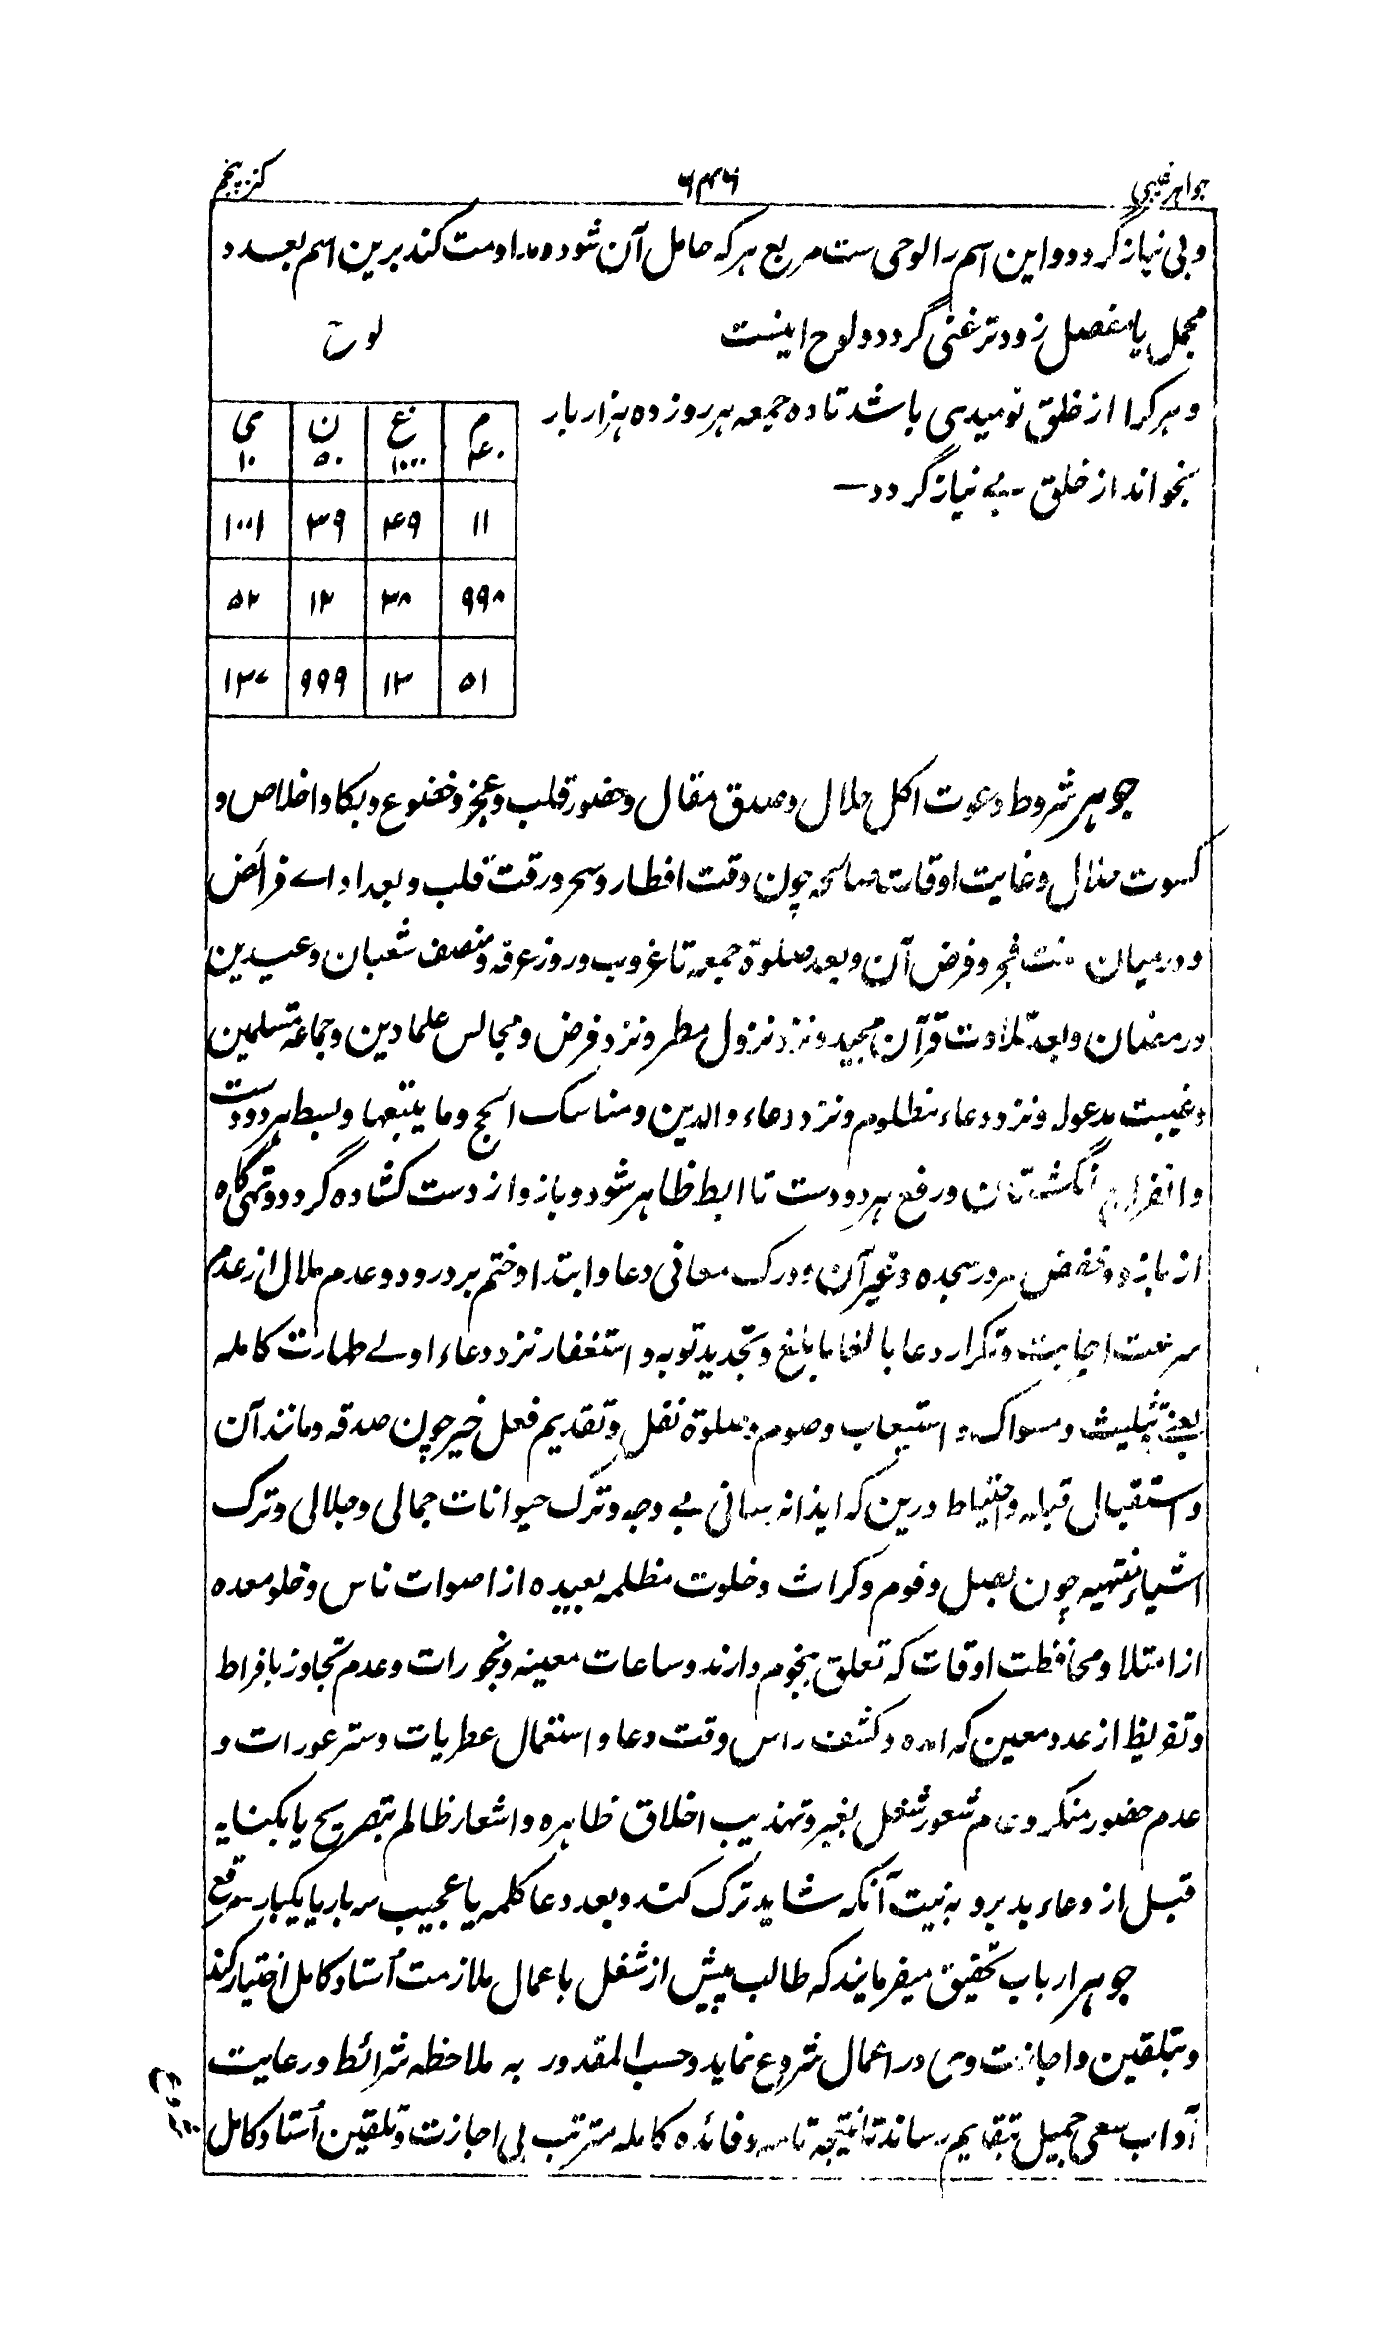 جواہر غیبی ۶۴۶ کنز پنجم
و بی نیاز گردد و این اسم را لوحی ست مربع ہر کہ حامل آن شود و مداومت کند برین اسم بعدد
مجمل یا مفصل زودتر غنی گردد و لوح اینست
لوح
و ہر کرا از خلق نومیدی باشد تا دہ جمعہ ہر روز دہ ہزار بار
بخواند از خلق بے نیاز گردد
م ۴۰ غ ۱۰۰۰ ن ۵۰ ی ۱۰
۱۱ ۴۹ ۳۹ ۱۰۰۱
۹۹۸ ۳۸ ۱۲ ۵۲
۵۱ ۱۳ ۹۹۹ ۳۷
جوہر شروط دعوت اکل حلال و صدق مقال و حضور قلب و عجز و خضوع و بکا و اخلاص و
کسوت حلال و غایت اوقات صالحہ چون وقت افطار و سحر و رقت قلب و بعد اداے فرائض
و درمیان سنت فجر و فرض آن و بعد صلوة جمعہ تا غروب و روز عرفہ و نصف شعبان و عیدین
و رمضان و بعد تلاوت قرآن مجید و نزد نزول مطر و نزد فرض و مجالس علما دین و جماعة مسلمین
و غیبت مدعولہ و نزد دعاء مظلوم و نزد دعاء والدین و مناسک الحج و ما یتبعہا و بسط ہر دو دست
و انفراج انگشتان و رفع ہر دو دست تا ابط ظاہر شود و بازو از دست کشادہ گردد و تہی گاہ
از بازو و خفض سر در سجدہ و غیر آن و درک معانی دعا و ابتدا و ختم بر درود و عدم ملال از عدم
سرعت اجابت و تکرار دعا بالغا ما بلغ و تجدید توبہ و استغفار نزد دعاء اولے طہارت کاملہ
یعنے تثلیث و مسواک و استیعاب و صوم و صلوة نفل و تقدیم فعل خیر چون صدقہ و مانند آن
و استقبال قبلہ و احتیاط درین کہ ایذا نہ رسانی بے وجہ و ترک حیوانات جمالی و جلالی و ترک
اشیاء منتہیہ چون بصل و فوم و کراث و خلوت مظلمہ بعیدہ از اصوات ناس و خلو معدہ
از امتلا و محافظت اوقات کہ تعلق بنجوم دارند و ساعات معینہ و بخورات و عدم تجاوز بافراط
و تفریط از عدد معین کہ آمدہ و کشف راس وقت دعا و استعمال عطریات و ستر عورات و
عدم حضور منکر و عدم شعور شغل بغیر و تہذیب اخلاق ظاہرہ و اشعار ظالم بتصریح یا بکنایہ
قبل از دعاء بد برو بہ نیت آنکہ شاید ترک کند و بعد دعا کلمہ یا مجیب سہ بار یا یکبار
جوہر ارباب تحقیق میفرمایند کہ طالب پیش از شغل باعمال ملازمت اُستاد کامل اختیار کند
و بتلقین و اجازت وی در اعمال شروع نماید و حسب المقدور بہ ملاحظہ شرائط و رعایت
آداب سعی جمیل بتقدیم رساند تا نتیجہ تامہ و فائدہ کاملہ مترتب بی اجازت و تلقین اُستاد کامل